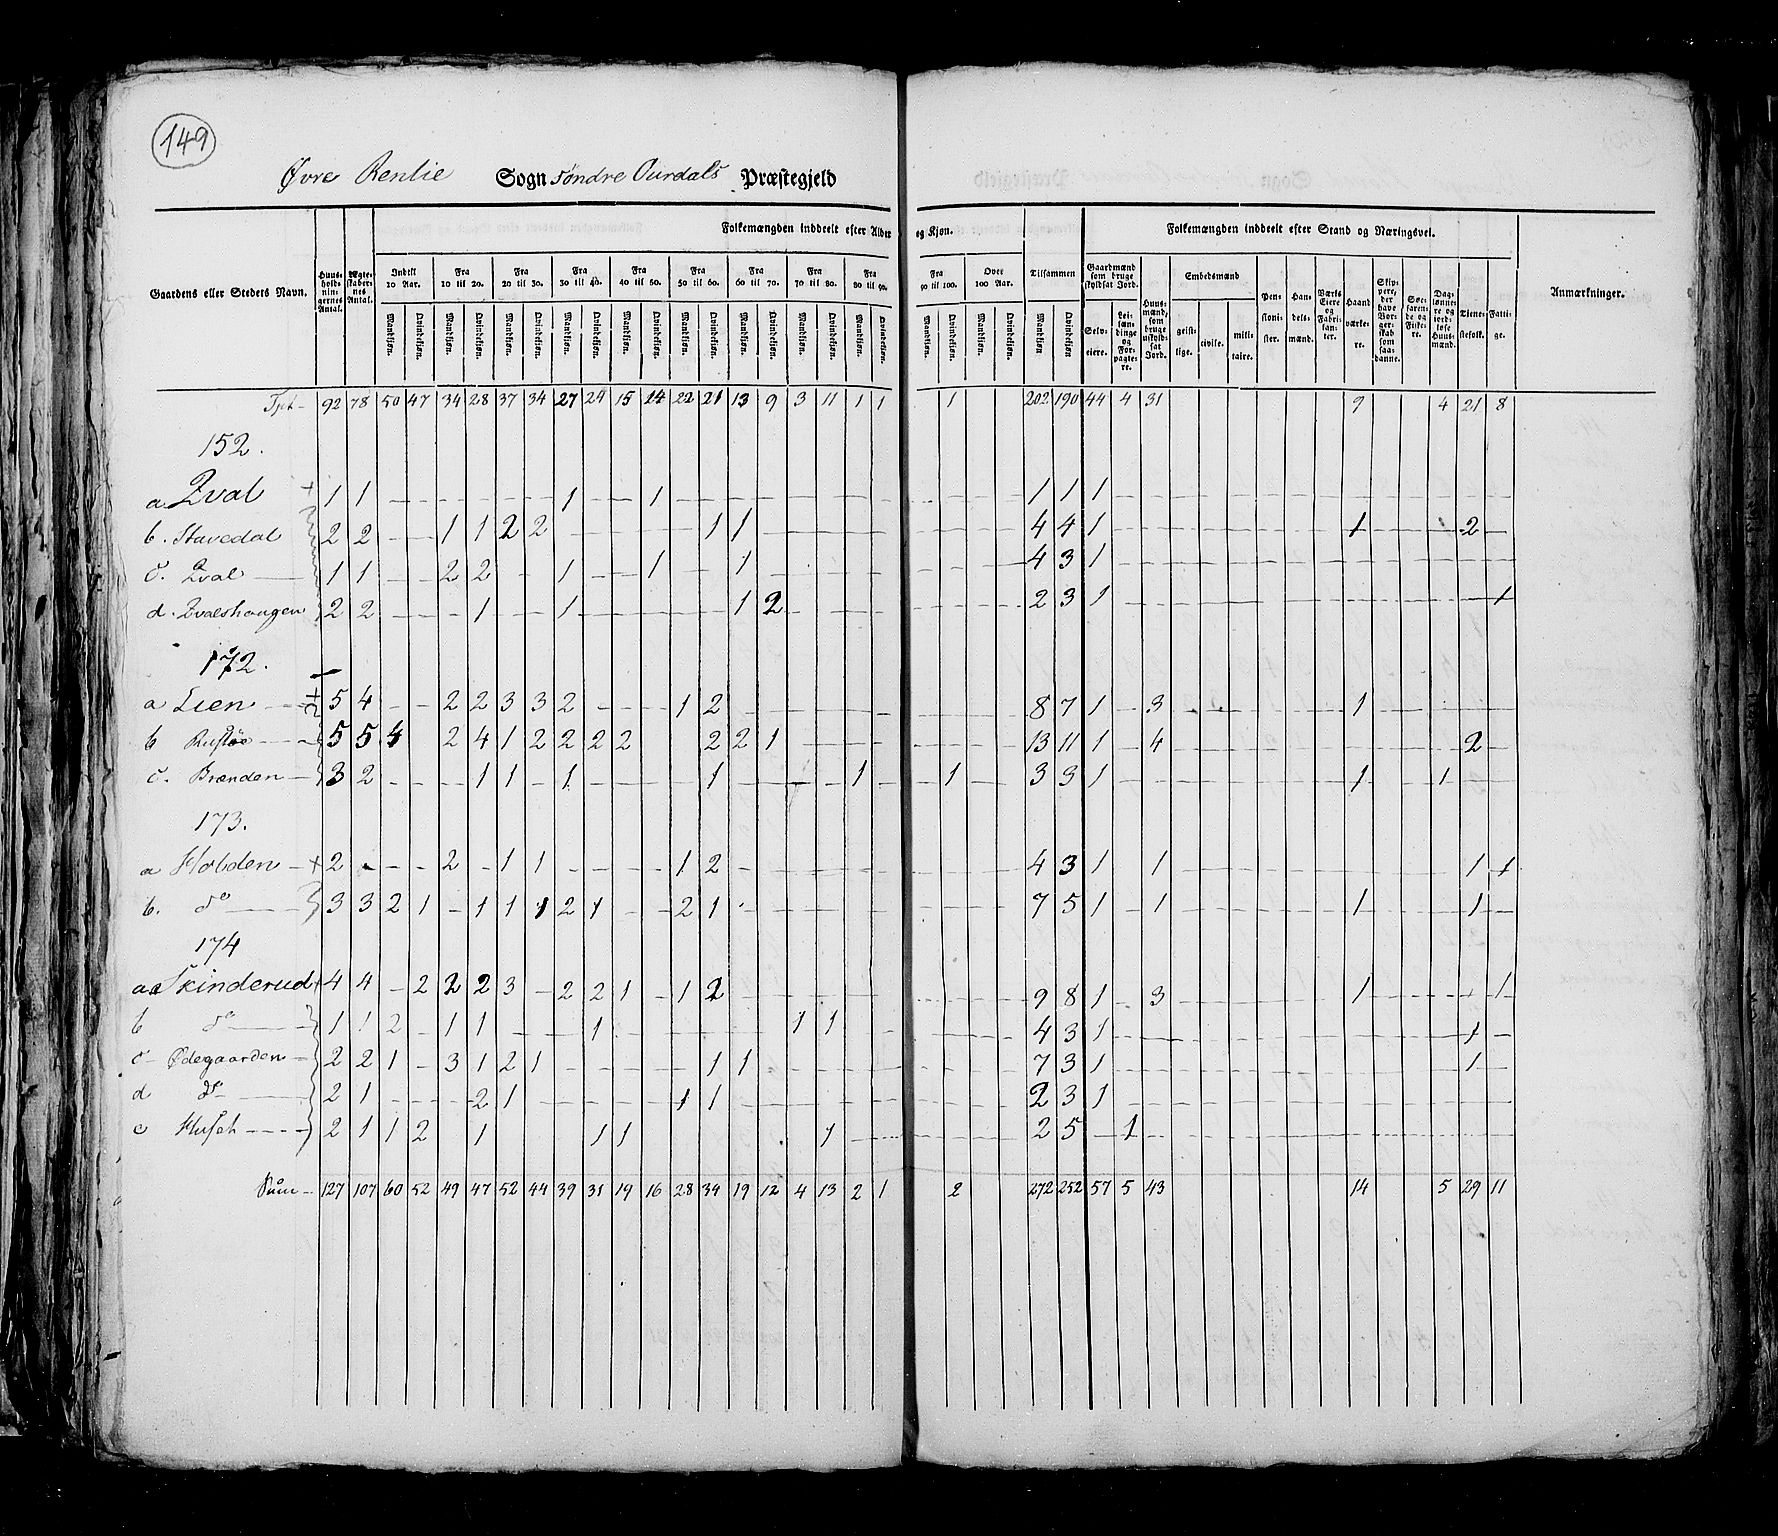 149
Øvre Renlie Sogn Søndre Ourdals Præstegjeld
Folkemængden inddeelt efter Alder og Kjøn. Folkemængden inddeelt efter Stand og Næringsvei.
Gaardens eller Stedets Navn. Huusholdningernes Antal. Ægteskabernes Antal. Indtil 10 Aar. Fra 10 til 20. Fra 20 til 30. Fra 30 til 40. Fra 40 til 50. Fra 50 til 60. Fra 60 til 70. Fra 70 til 80. Fra 80 til 90. Fra 90 til 100. Over 100 Aar. Tilsammen Gaardmænd som bruge skyldsat Jord. Huusmænd, som bruge uskyldsat Jord. Embedsmænd Pensionister. Handelsmænd. Værks Eiere og Fabrikanter. Haandværkere. Skippere, der have Borgerskab som saadanne. Søefarende og Fiskere. Daglønnere og jordløse Huusmænd. Tienestefolk. Fattige. Anmærkninger.
Mandkjøn. Qvindekjøn. Mandkjøn. Qvindekjøn. Mandkjøn. Qvindekjøn. Mandkjøn. Qvindekjøn. Mandkjøn. Qvindekjøn. Mandkjøn. Qvindekjøn. Mandkjøn. Qvindekjøn. Mandkjøn. Qvindekjøn. Mandkjøn. Qvindekjøn. Mandkjøn. Qvindekjøn. Mandkjøn. Qvindekjøn. Mandkjøn Qvindekjøn Selveiere. Leilændinge og Forpagtere. geistlige. civile. militaire.
Tpt - 92 78 50 47 34 28 37 34 27 24 15 14 22 21 13 9 3 11 1 1 1 202 190 44 4 31 9 4 21 8
152.
a Qval + 1 1 1 1 1 1 1
b. Stavedal 2 2 1 1 2 2 1 1 4 4 1 1 2
c. Qval 1 1 2 2 1 1 1 4 3 1
d. Qvalshaugen 2 2 1 1 1 2 2 3 1 1
172.
a Lien 5 4 2 2 3 3 2 1 2 8 7 1 3 1
b Rustøe 5 5 4 2 4 1 2 2 2 2 2 2 1 13 11 1 4 2
c. Brænden 3 2 1 1 1 1 1 1 3 3 1 1 1
173.
a Holden + 2 2 1 1 1 2 4 3 1 1 1 1
b. do 3 3 2 1 1 1 1 2 1 2 1 7 5 1 1 1 1
174
a Skinderud 4 4 2 2 2 3 2 2 1 1 2 9 8 1 3 1 1
b do 1 1 2 1 1 1 1 1 4 3 1 1
c Ødegaarden 2 2 1 3 1 2 1 1 1 7 3 1 1
d do 2 1 2 1 1 1 2 3 1
e Huset 2 1 1 2 1 1 1 1 2 5 1
Sum - 127 107 60 52 49 47 52 44 39 31 19 16 28 34 19 12 4 13 2 1 2 272 252 57 5 43 14 5 29 11